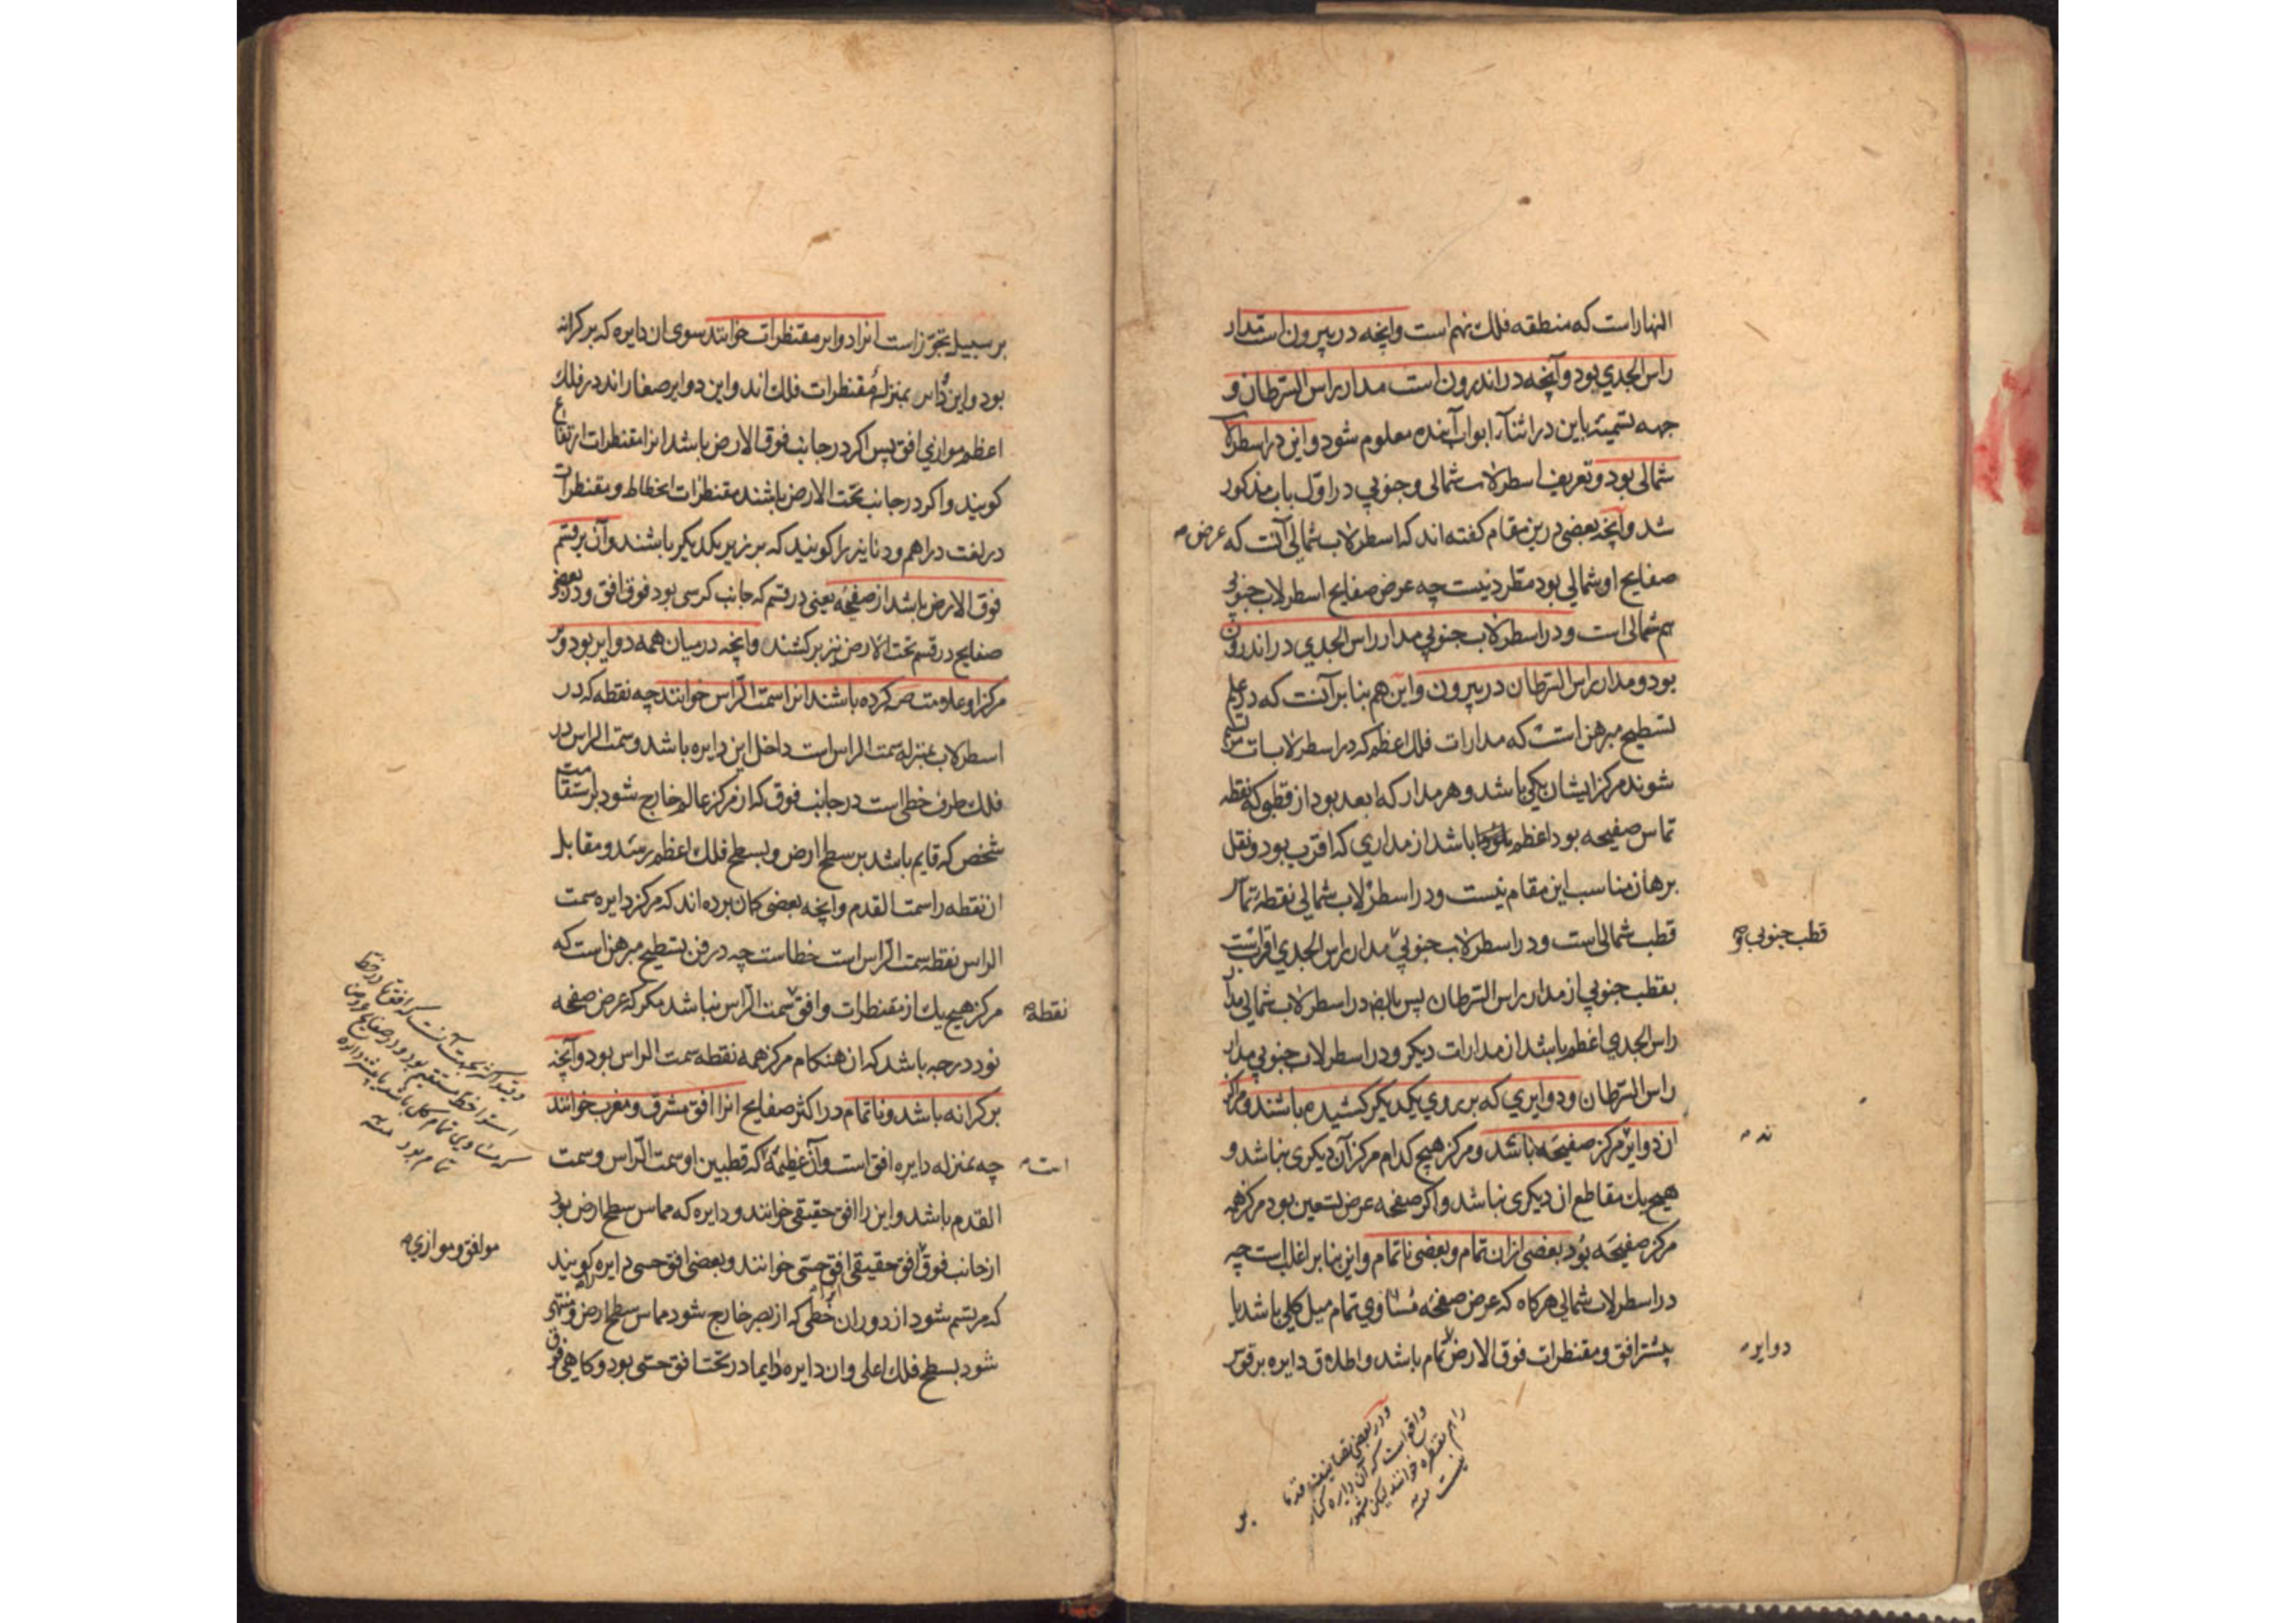 النهار است که منطقه فلك نهم است وانچه در بیرون است مدار
راس الجدي بود و آنچه در اندرون است مدار راس السرطان و
جهه تسمیه باین در اثنآء ابواب آینده معلوم شود و این در اسطرلاب
شمالی بود و تعریف اسطرلاب شمالی و جنوبي در اوّل باب مذکور
شد و آنچه بعضی درین مقام کفته اند که اسطرلاب شمالی آنست که عرض
صفایح او شمالي بود مطّرد نیست چه عرض صفایح اسطرلاب جنوبي
هم شمالی است و در اسطرلاب جنوبي مدار راس الجدي در اندرون
بود و مدار راس السرطان در بیرون و این هم بنا بر آنست که در علم
تسطیح مبرهن است که مدارات فلك اعظم که در اسطرلابات
شوند مرکز ایشان یکي باشد و هر مدار که ابعد بود از قطبی که نقطه
تماس صفیحه بود اعظم باشد از مداري که اقرب بود و نقل
برهان مناسب این مقام نیست و در اسطرلاب شمالي نقطهٔ تماس
قطب شمالی است و در اسطرلاب جنوبي مدار راس الجدي اقربست
قطب جنوبی و
بقطب جنوبي از مدار راس السرطان پس در اسطرلاب شمالي مدار
راس الجدي اعظم باشد از مدارات دیکر و در اسطرلاب جنوبي مدار
راس السرطان و دوایري که بر روي یکدیکر کشیده باشند و مرکز
ان دوایر مرکز صفیحه باشد و مرکز هیچ کدام مرکز آن دیکری نباشد و
ند
هیچ یك مقاطع ان دیکری نباشد و اکر صفحه عرض تسعین بود مرکز همه
مرکز صفیحه بود بعضی ازان تمام و بعضی ناتمام و این بنا بر اغلب است چه
در اسطرلاب شمالي هرکاه که عرض صفحه مساوي تمام میل کلي باشد یا
بیشتر افق و مقنطرات فوق الارض تمام باشد و اطلاق دایره بر قوس
دوایر
ودر بعضی تصانیف قدما
واقع است که آن دایره کنار
را هم مقنطره خوانند لیکن مشهور
نیست منه
بر
بر سبیل تجوّز است انرا دوایر مقنطرات خوانند سوی ان دایره که بر کرانه
بود و این دوایر بمنزلهٔ مقنطرات فلك اند و این دوایر صغار اند در فلك
اعظم موازي افق پس اکر در جانب فوق الارض باشد انرا مقنطرات ارتفاع
کویند و اکر در جانب تحت الارض باشند مقنطرات انحطاط و مقنطرات
در لغت دراهم و دنانیر را کویند که بر زبر یکدیکر باشند و آن بر قسم
فوق الارض باشد از صفحه یعنی در قسم که جانب کرسی بود فوق افق و در بعضی
صفایح در قسم تحت الارض نیز بر کشند و انچه در میان همه دوایر بود و بر
مرکز او علامت ص کرده باشند انرا سمت الرّاس خوانند چه نقطه که در
اسطرلاب بمنزله سمت الراس است داخل این دایره باشد و سمت الراس در
فلك طرف خطی است در جانب فوق که از مرکز عالم خارج شود بر استقامت
شخص که قایم باشد بر سطح ارض و بسطح فلك اعظم رسد و مقابل
ان نقطه را سمت القدم و انچه بعضی کمان برده اند که مرکز دایره سمت
الراس نقطه سمت الرّاس است خطاست چه در فن تسطیح مبرهن است که
مرکز هیچ یك از مقنطرات وافق سمت الرّاس نباشد مکر که عرض صفحه
نقطه
نود درجه باشد که ان هنکام مرکز همه نقطه سمت الراس بود و آنچه
بر کرانه باشد و ناتمام در اکثر صفایح انرا افق مشرق و مغرب خوانند
چه بمنزله دایره افق است و آن عظیمهٔ که قطبین او سمت الرّاس و سمت
است
القدم باشد و این را افق حقیقی خوانند و دایره که مماس سطح ارض بود
از جانب فوق افق حقیقی افق حسّی خوانند و بعضی افق حسی دایره را کویند
موافق و موازي
که مرتسم شود از دوران خطی که از بصر خارج شود مماس سطح ارض و منتهی
شود بسطح فلك اعلی و ان دایره دایما در تحت افق حسّی بود و کاهی فوق
وقید اکثر بجهت آنست که افق در خط
استوا خط مستقیم بود و در صفایح عرض
مساوی تمام میل کلی باشد یا بیشتر دایره
تمام بود منه